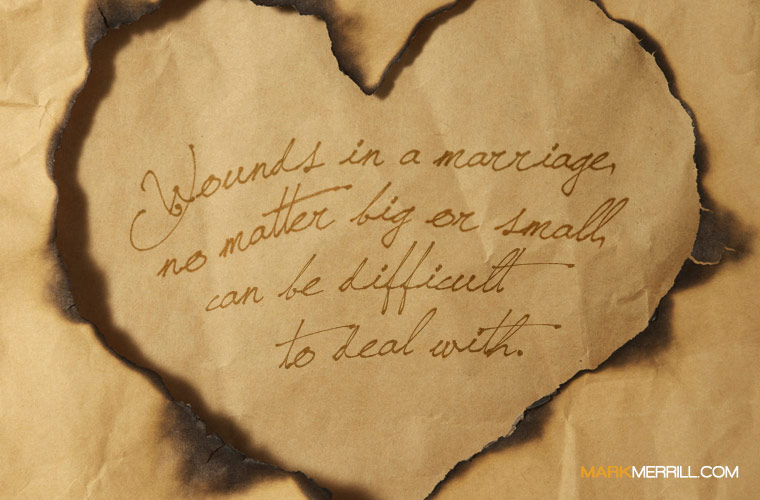 Wounds in a marriage,
no matter big or small,
can be difficult
to deal with.
MARKMERRILL.COM